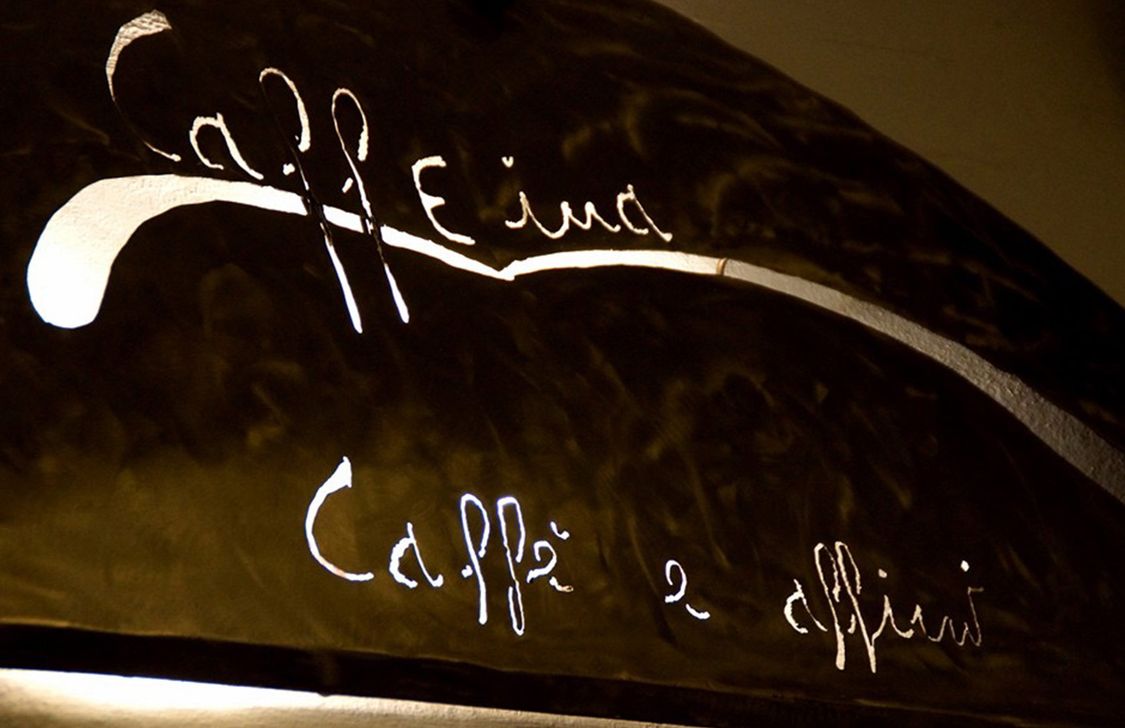 Caffeina
Caffè e affini